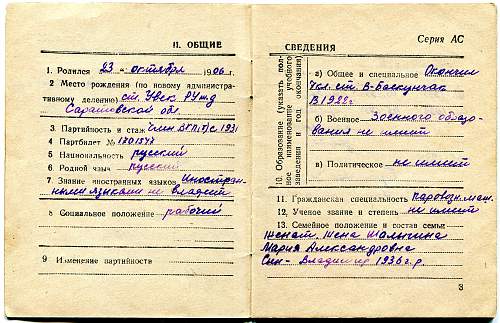 II. ОБЩИЕ
1. Родился 23 " октября 1906 г.
2 Место рождения (по новому административному делению) ст. Увек РУжд
Саратовской обл.
3. Партийность и стаж член ВКП(б) с 1931
4 Партбилет № 1701547
5 Национальность русский
6 Родной язык русский
7 Знание иностранных языков Иностран-
ными языками не владеет
8 Социальное положение рабочий
9 Изменение партийности
Серия АС
СВЕДЕНИЯ
10 Образование (указать полное наименование учебного заведения и год окончания)
а) Общее и специальное Окончил
4 кл. ст. В-Баскунчак
в 1922 г.
б) Военное Военного образо-
вания не имеет
в) Политическое не имеет
11. Гражданская специальность паровозн. маш.
12, Ученое звание и степень не имеет
13. Семейное положение и состав семьи
женат. Жена Шалыгина
Мария Александровна
Сын - Владимир 1936 г.р.
3